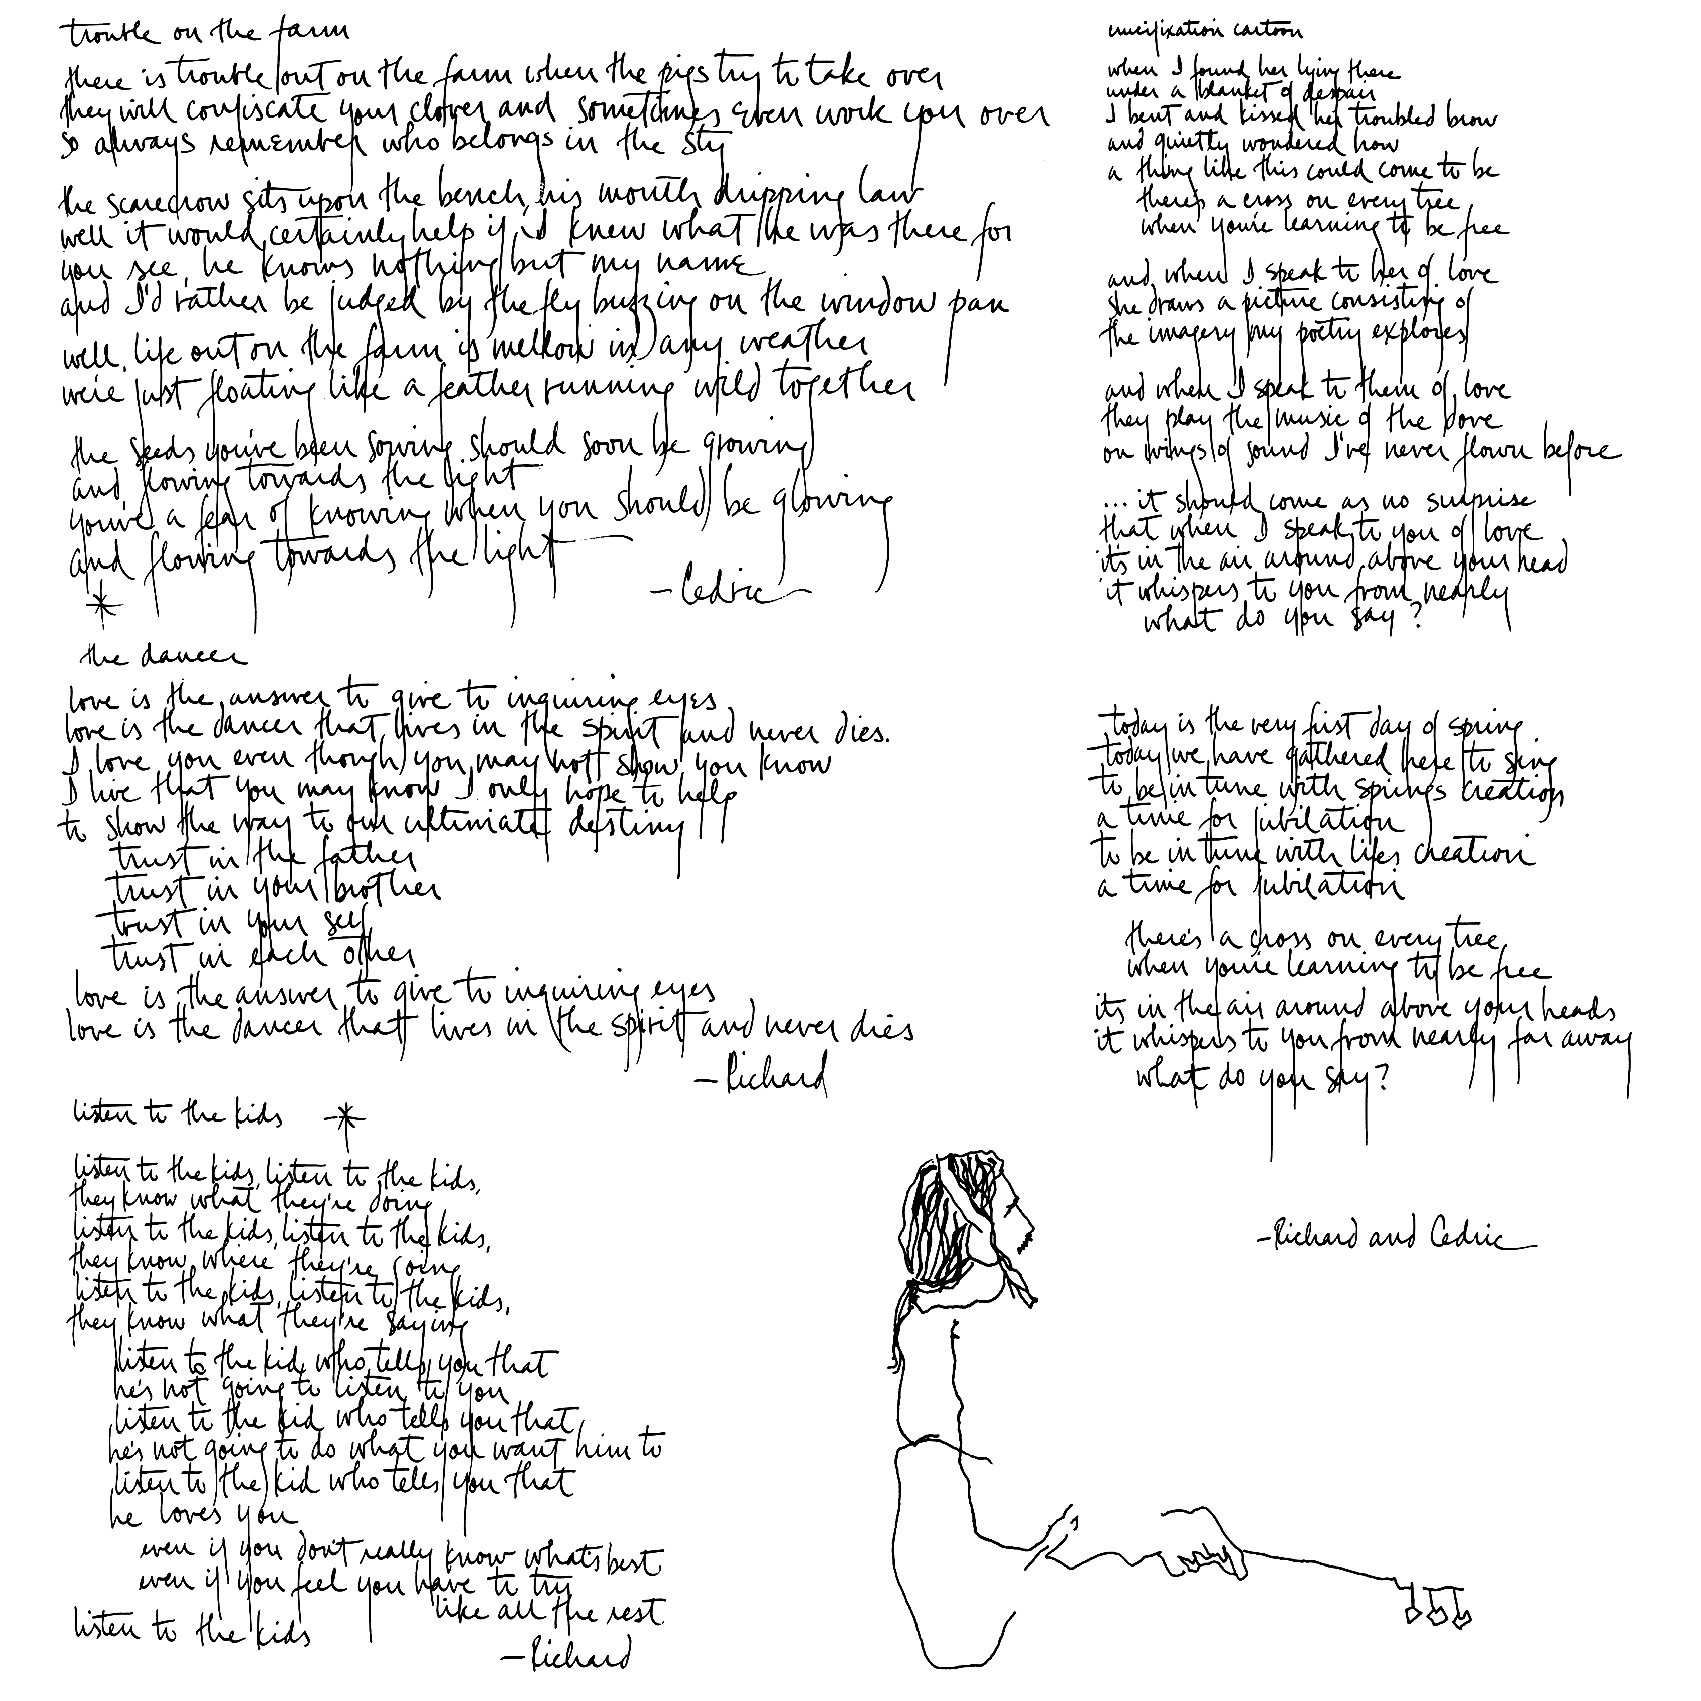 trouble on the farm
there is trouble out on the farm when the pigs try to take over
they will confiscate your clover and sometimes even work you over
so always remember who belongs in the sty
the scarecrow sits upon the bench, his mouth dripping law
well it would certainly help if i'd knew what he was there for
you see, he knows nothing but my name
and I'd rather be judged by the fly buzzing on the window pan
well, life out on the farm is mellow in any weather
we're just floating like a feather running wild together
the seeds you've been sowing should soon be growing
and flowing towards the light
you've a fear of knowing when you should be glowing
and flowing towards the light
-Cedric-
the dancer
love is the answer to give to inquiring eyes
love is the dancer that lives in the spirit and never dies.
I love you even though you may not show you know
I live that you may know I only hope to help
to show the way to our ultimate destiny
trust in the father
trust in your brother
trust in your self
trust in each other
love is the answer to give to inquiring eyes
love is the dancer that lives in the spirit and never dies
-Richard
listen to the kids
listen to the kids, listen to the kids,
they know what they're doing
listen to the kids, listen to the kids,
they know where they're going
listen to the kids, listen to the kids,
they know what they're saying
listen to the kid who tells you that
he's not going to listen to you
listen to the kid who tells you that
he's not going to do what you want him to
listen to the kid who tells you that
he loves you
even if you don't really know what's best
even if you feel you have to try
like all the rest
listen to the kids
-Richard
crucifixation cartoon
when I found her lying there
under a blanket of despair
I bent and kissed her troubled brow
and quietly wondered how
a thing like this could come to be
there's a cross on every tree
when you're learning to be free
and when I speak to her of love
she draws a picture consisting of
the imagery my poetry explores
and when I speak to them of love
they play the music of the dove
on wings of sound I've never flown before
... it should come as no surprise
that when I speak to you of love
it's in the air around above your head
it whispers to you from nearly
what do you say?
today is the very first day of spring
today we have gathered here to sing
to be in tune with spring's creation
a time for jubilation
to be in tune with lifes creation
a time for jubilation
there's a cross on every tree
when you're learning to be free
its in the air around above your heads
it whispers to you from nearly far away
what do you say?
-Richard and Cedric